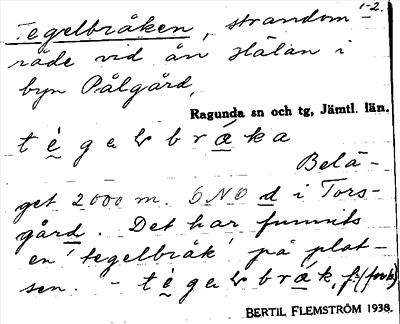 1-2.
Tegelbråken, strandom-
råde vid ån Hälån i
byn Pålgård,
Ragunda sn och tg, Jämtl. län.
t è g a b r ǻ k a
Belä-
get 2000 m. ONO d i Tors-
gård. Det har funnits
en 'tegelbråk' på plat-
sen. - t è g a b r ǻ k, f.
BERTIL FLEMSTRÖM 1938.